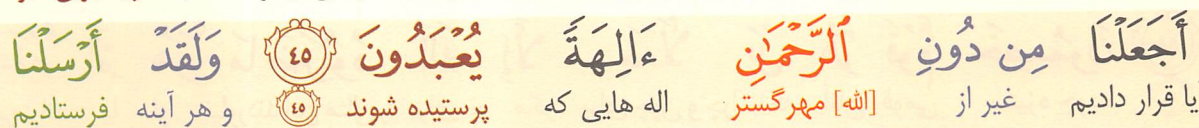 أَجَعَلْنَا مِن دُونِ ٱلرَّحْمَٰنِ ءَالِهَةً يُعْبَدُونَ ﴿٤٥﴾ وَلَقَدْ أَرْسَلْنَا
یا قرار دادیم غیر از [الله] مهرگستر اله هایی که پرستیده شوند ﴿٤٥﴾ و هر آینه فرستادیم